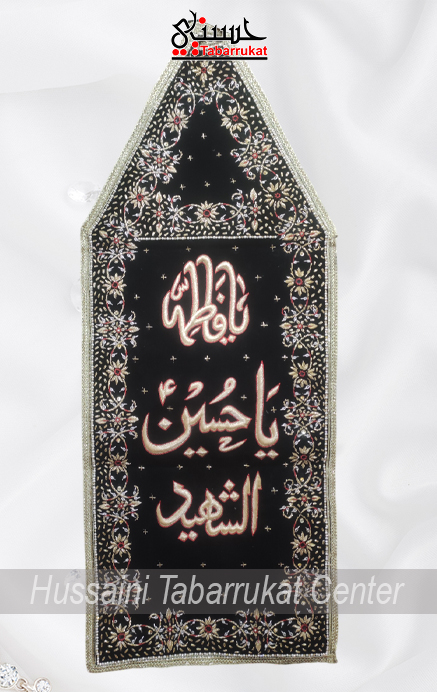 حسینی
Tabarrukat
یا فاطمہؑ
یا حسینؑ
الشهید
Hussaini Tabarrukat Center